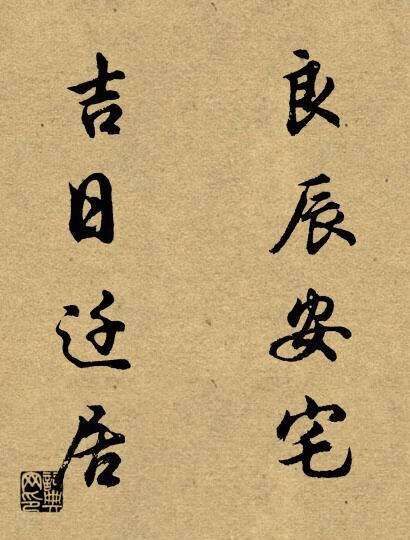 良辰安宅
吉日迁居